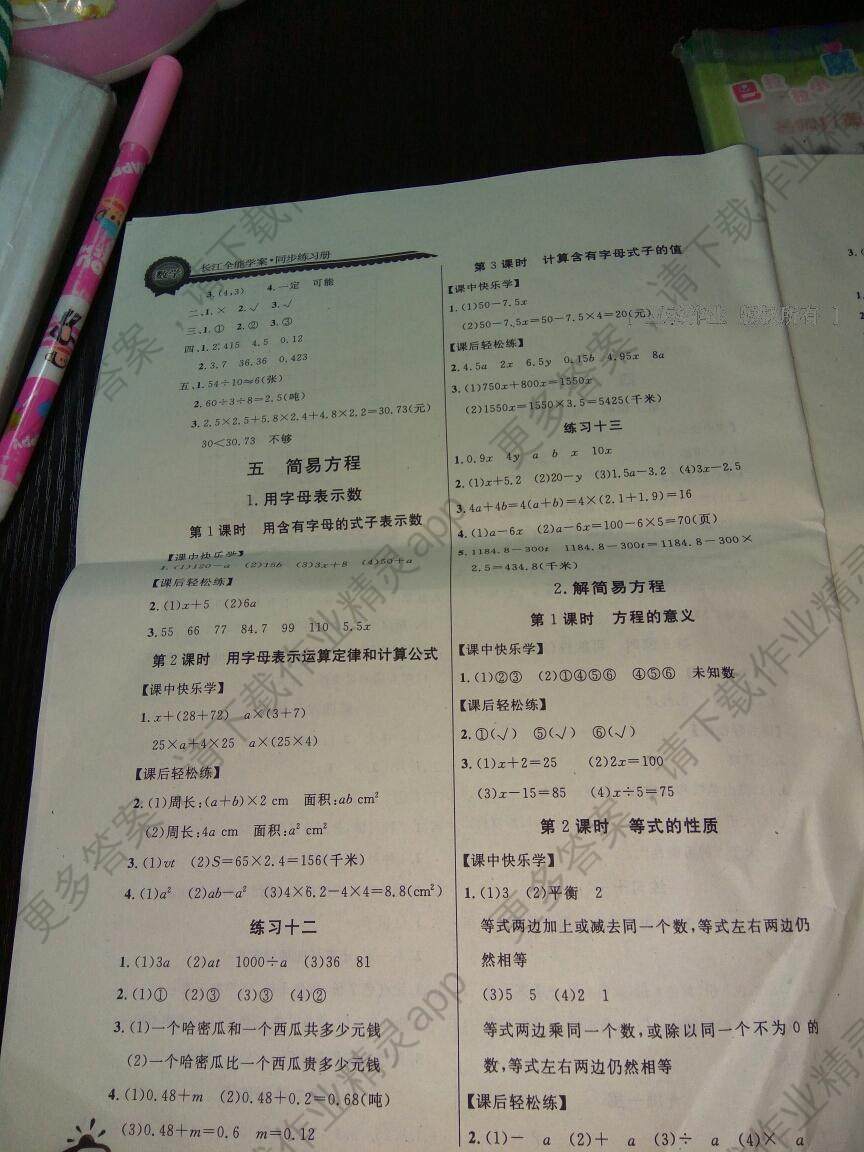 数学 长江全能学案·同步练习册
3.(4,3) 4.一定 可能
二、1.× 2.√ 3.√
三、1.① 2.② 3.③
四、1.2.415 4.5 0.12
2.3.7 36.36 0.423
五、1.54÷10≈6(张)
2.60÷3÷8=2.5(吨)
3.2.5×2.5+5.8×2.4+4.8×2.2=30.73(元)
30<30.73 不够
五 简易方程
1.用字母表示数
第1课时 用含有字母的式子表示数
【课中快乐学】
1.(1)120-a (2)15b (3)3x+8 (4)50+a
【课后轻松练】
2.(1)x+5 (2)6a
3.55 66 77 84.7 99 110 5.5x
第2课时 用字母表示运算定律和计算公式
【课中快乐学】
1.x+(28+72) a×(3+7)
25×a+4×25 a×(25×4)
【课后轻松练】
2.(1)周长:(a+b)×2 cm 面积:ab cm²
(2)周长:4a cm 面积:a² cm²
3.(1)vt (2)S=65×2.4=156(千米)
4.(1)a² (2)ab-a² (3)4×6.2-4×4=8.8(cm²)
练习十二
1.(1)3a (2)at 1000÷a (3)36 81
2.(1)① (2)③ (3)③ (4)②
3.(1)一个哈密瓜和一个西瓜共多少元钱
(2)一个哈密瓜比一个西瓜贵多少元钱
4.(1)0.48+m (2)0.48+0.2=0.68(吨)
(3)0.48+m=0.6 m=0.12
第3课时 计算含有字母式子的值
【课中快乐学】
1.(1)50-7.5x
(2)50-7.5x=50-7.5×4=20(元)
【课后轻松练】
2.4.5a 2x 6.5y 0.15b 4.95x 8a
3.(1)750x+800x=1550x
(2)1550x=1550×3.5=5425(千米)
练习十三
1.0.9x 4y a b x 10x
2.(1)x+5.2 (2)20-y (3)1.5a-3.2 (4)3x-2.5
3.4a+4b=4(a+b)=4×(2.1+1.9)=16
4.(1)a-6x (2)a-6x=100-6×5=70(页)
5.1184.8-300t 1184.8-300t=1184.8-300×
2.5=434.8(千米)
2.解简易方程
第1课时 方程的意义
【课中快乐学】
1.(1)②③ (2)①④⑤⑥ ④⑤⑥ 未知数
【课后轻松练】
2.①(√) ⑤(√) ⑥(√)
3.(1)x+2=25 (2)2x=100
(3)x-15=85 (4)x÷5=75
第2课时 等式的性质
【课中快乐学】
1.(1)3 (2)平衡 2
等式两边加上或减去同一个数,等式左右两边仍
然相等
(3)5 5 (4)2 1
等式两边乘同一个数,或除以同一个不为0的
数,等式左右两边仍然相等
【课后轻松练】
2.(1)- a (2)+ a (3)÷ a (4)× a
更多答案,请下载作业精灵app